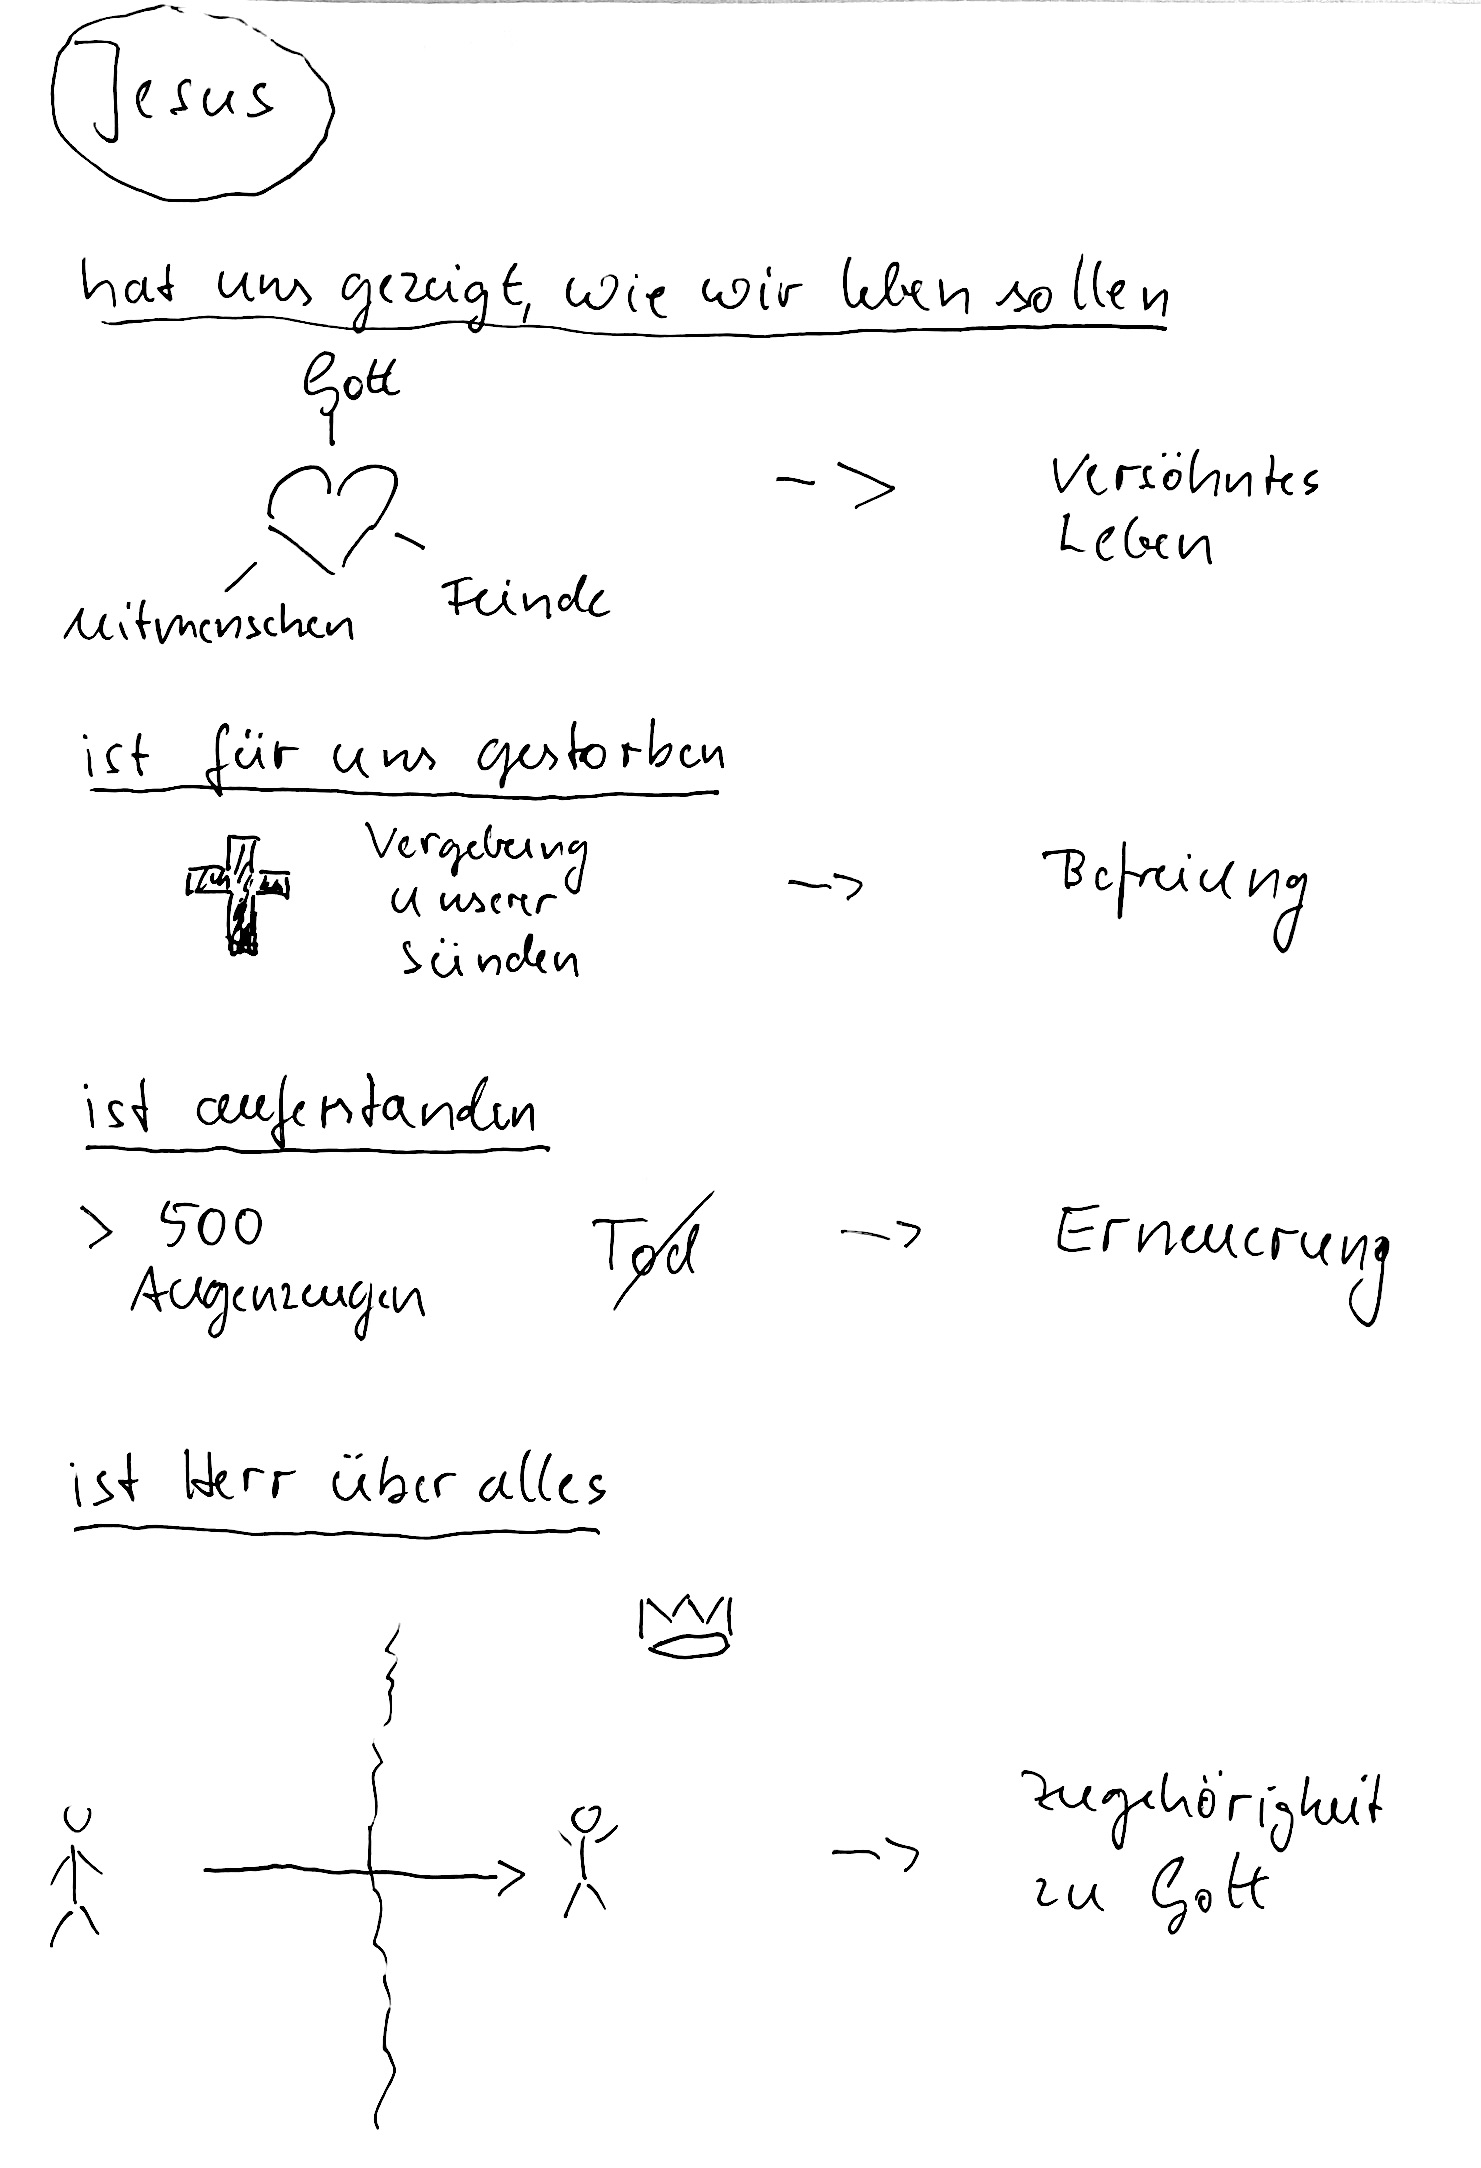 Jesus
hat uns gezeigt, wie wir leben sollen
Gott
-> Versöhntes
Leben
Mitmenschen
Feinde
ist für uns gestorben
Vergebung
unserer
Sünden
-> Befreiung
ist auferstanden
> 500
Augenzeugen
Tod
-> Erneuerung
ist Herr über alles
-> Zugehörigkeit
zu Gott